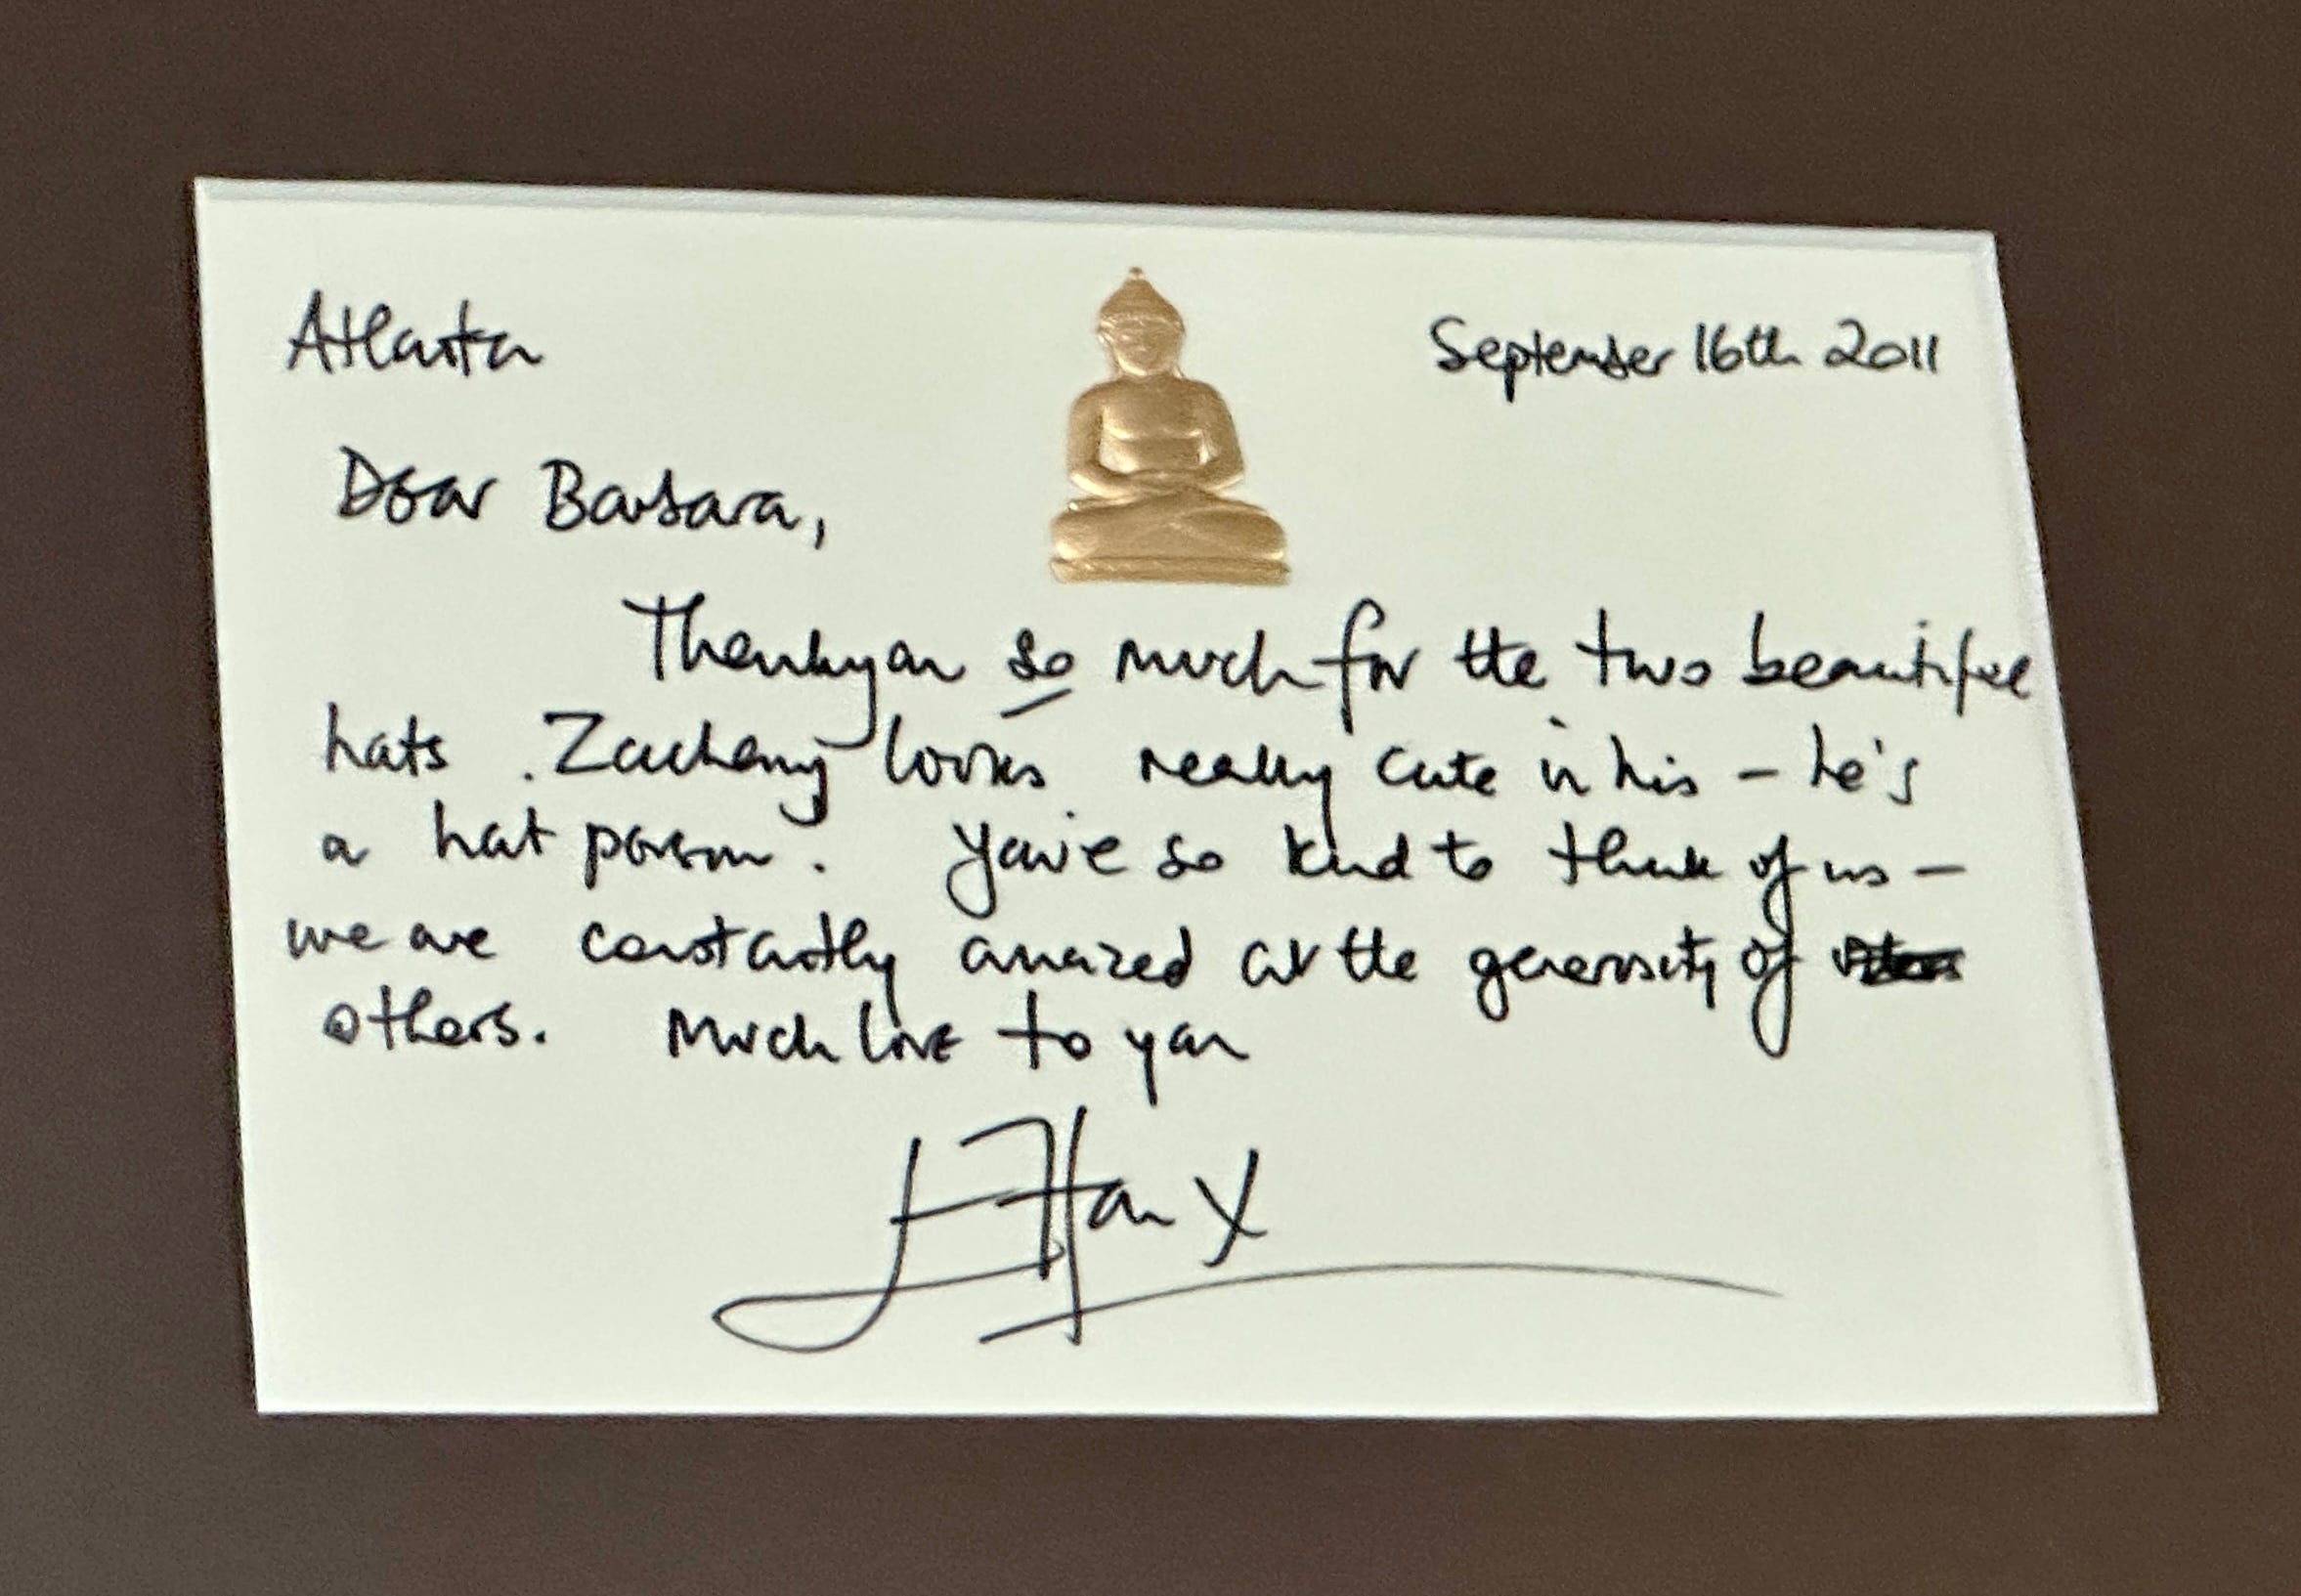 Atlanta
September 16th 2011
Dear Barbara,
Thankyou so much for the two beautiful
hats. Zachary looks really cute in his – he's
a hat person. You're so kind to think of us –
we are constantly amazed at the generosity of
others. Much love to you
X